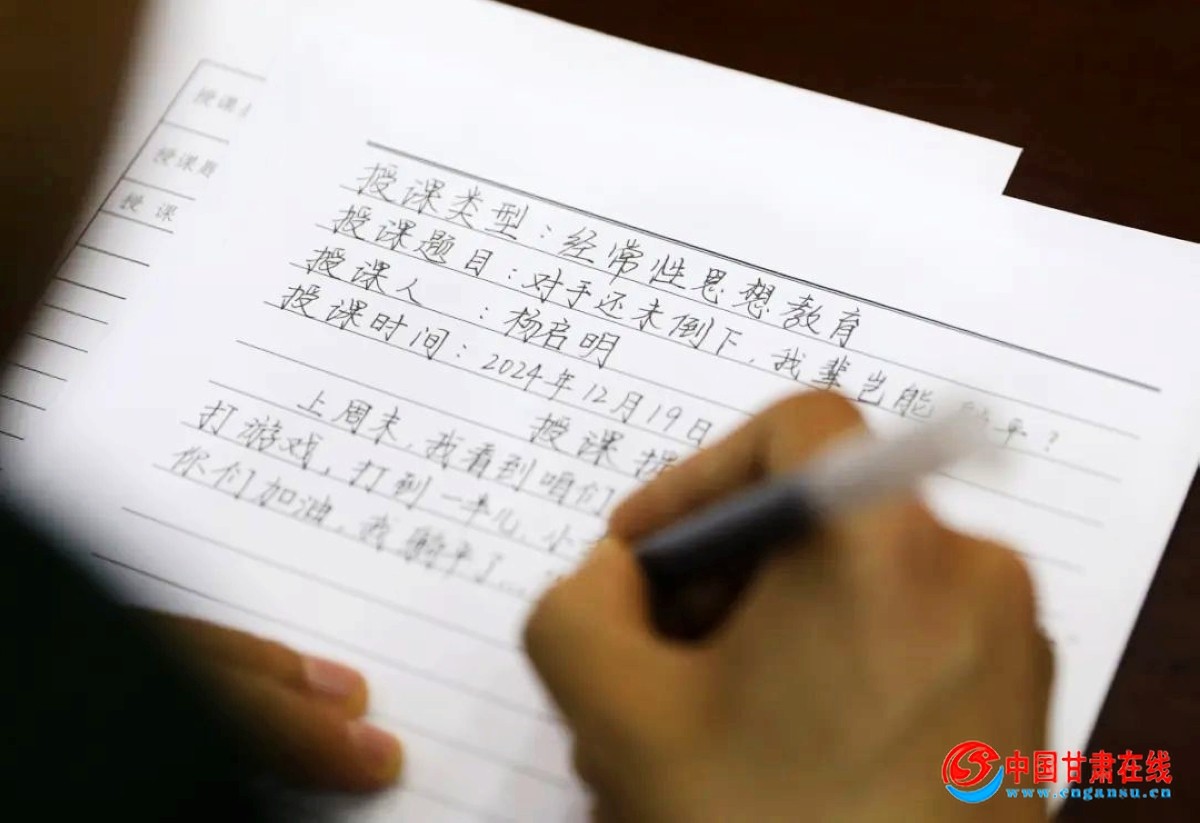 授课
授课题
授 课
授课类型：经常性思想教育
授课题目：对手还未倒下，我辈岂能躺平？
授课人 ：杨启明
授课时间：2024年12月19日
授课提
上周末，我看到咱们
打游戏，打到一半儿，小
你们加油，我躺平了……
中国甘肃在线
www.cngansu.cn